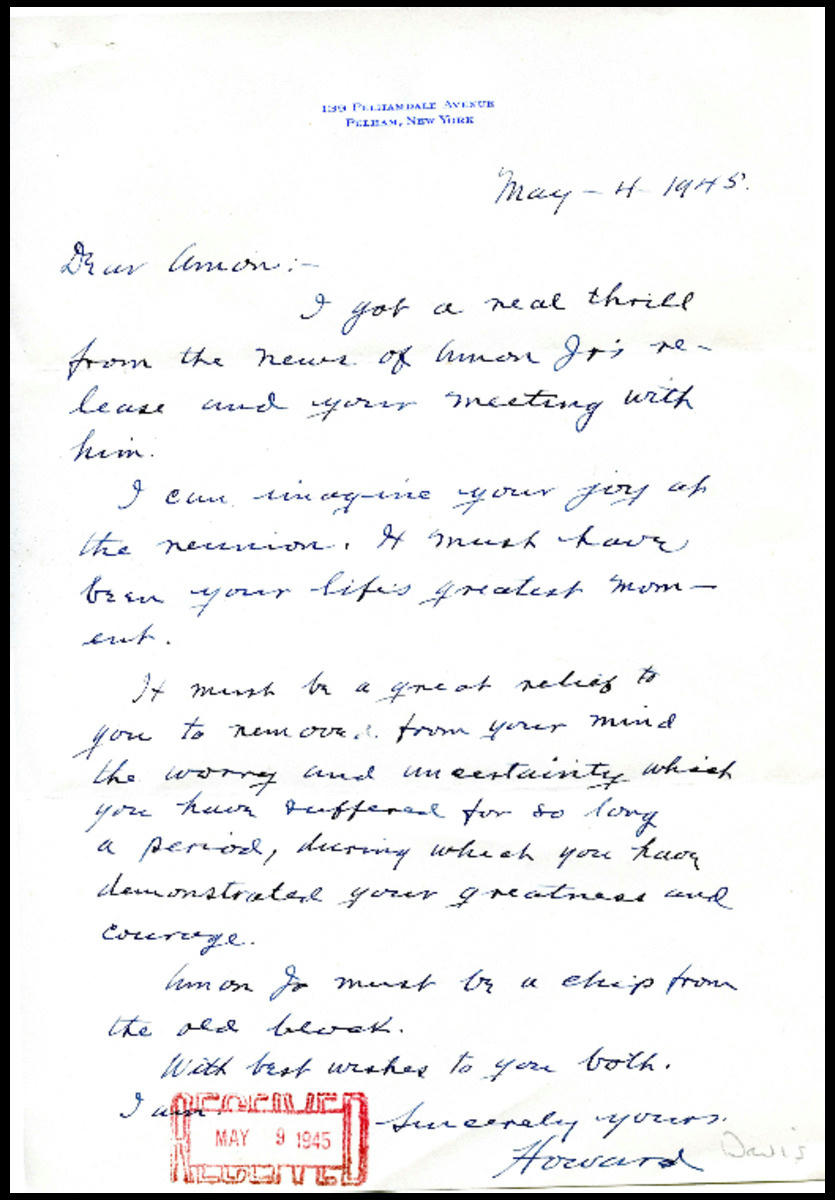 139 PELHAMDALE AVENUE
PELHAM, NEW YORK
May - 4 - 1945.
Dear Amon:-
I got a real thrill
from the news of Amon Jr's re-
lease and your meeting with
him.
I can imagine your joy at
the reunion. It must have
been your life's greatest mom-
ent.
It must be a great relief to
you to remove from your mind
the worry and uncertainty which
you have suffered for so long
a period, during which you have
demonstrated your greatness and
courage.
Amon Jr must be a chip from
the old block.
With best wishes to you both.
I am.
Sincerely yours.
Howard Davis
RECEIVED
MAY 9 1945